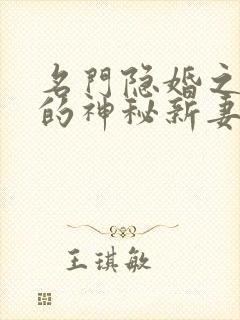 名門隐婚之
的神秘新妻
王琪敏